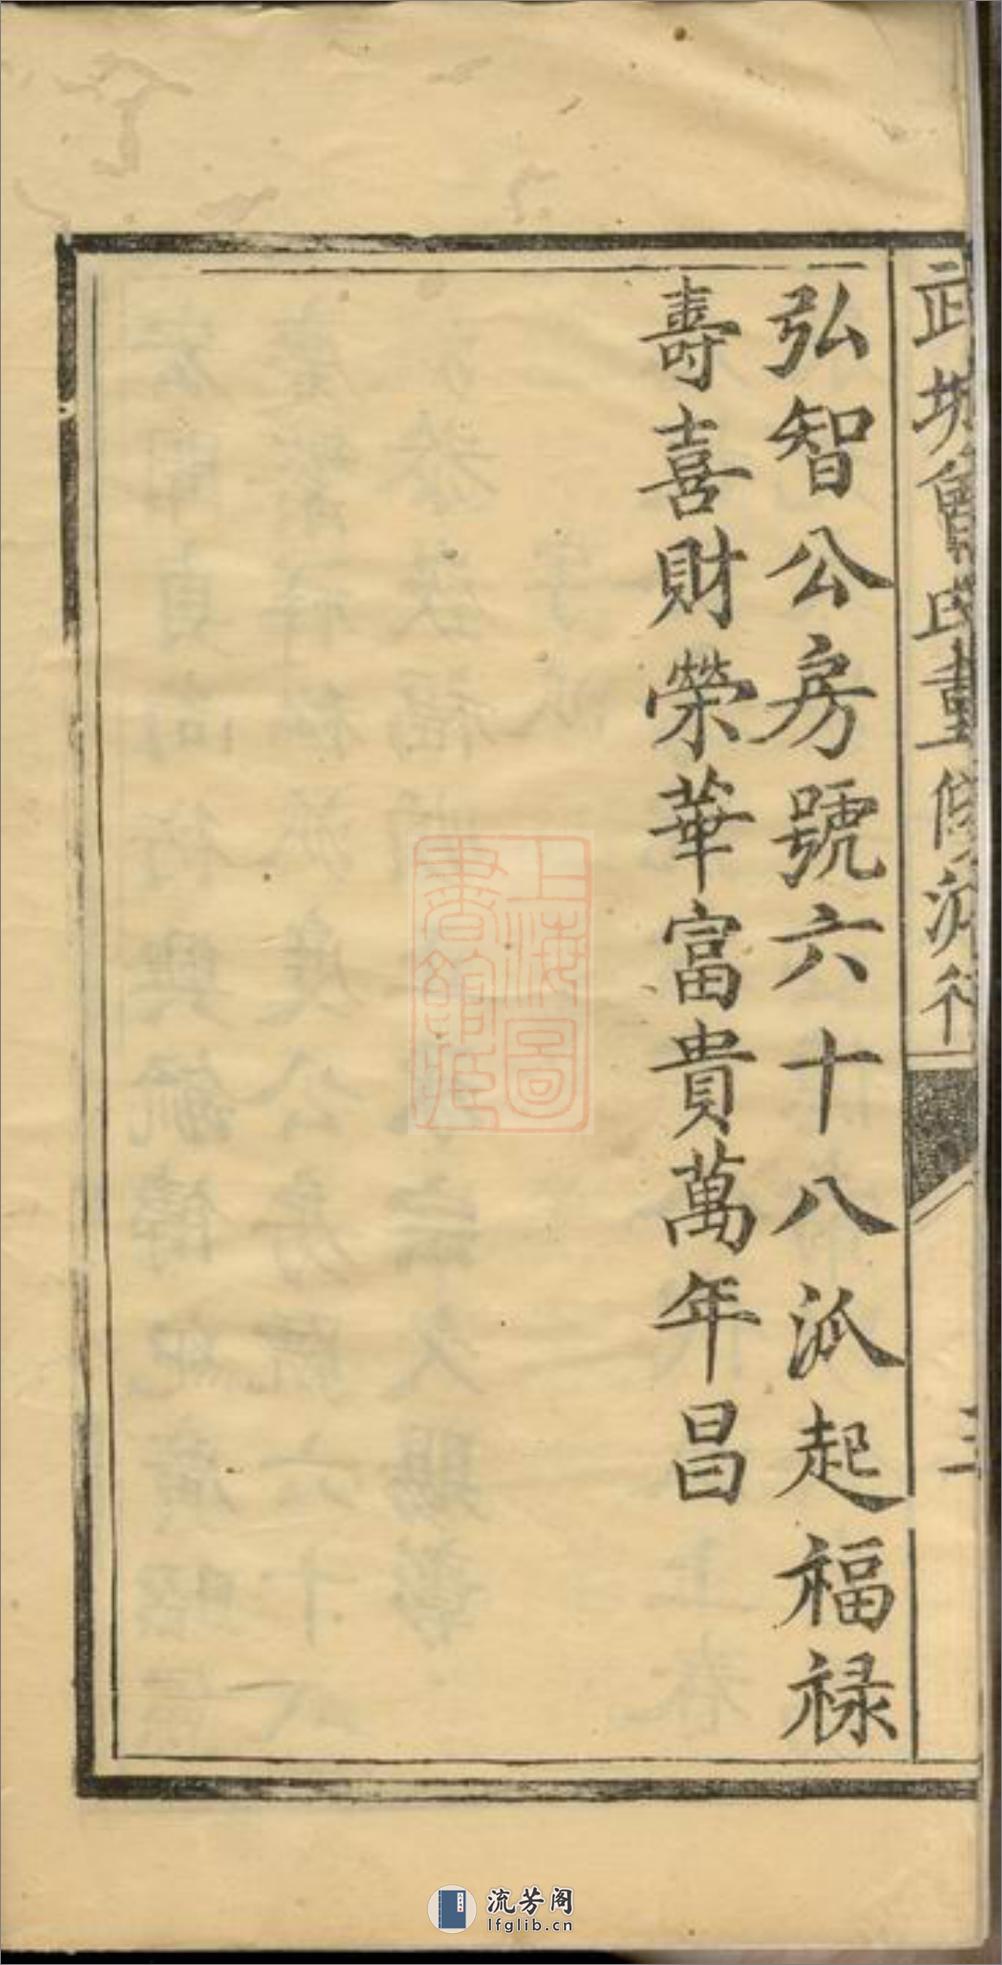 武城曾氏重修派行
三
弘智公房號六十八派起福禄
壽喜財榮華富貴萬年昌
上海圖
書館藏
流芳阁
lfglib.cn